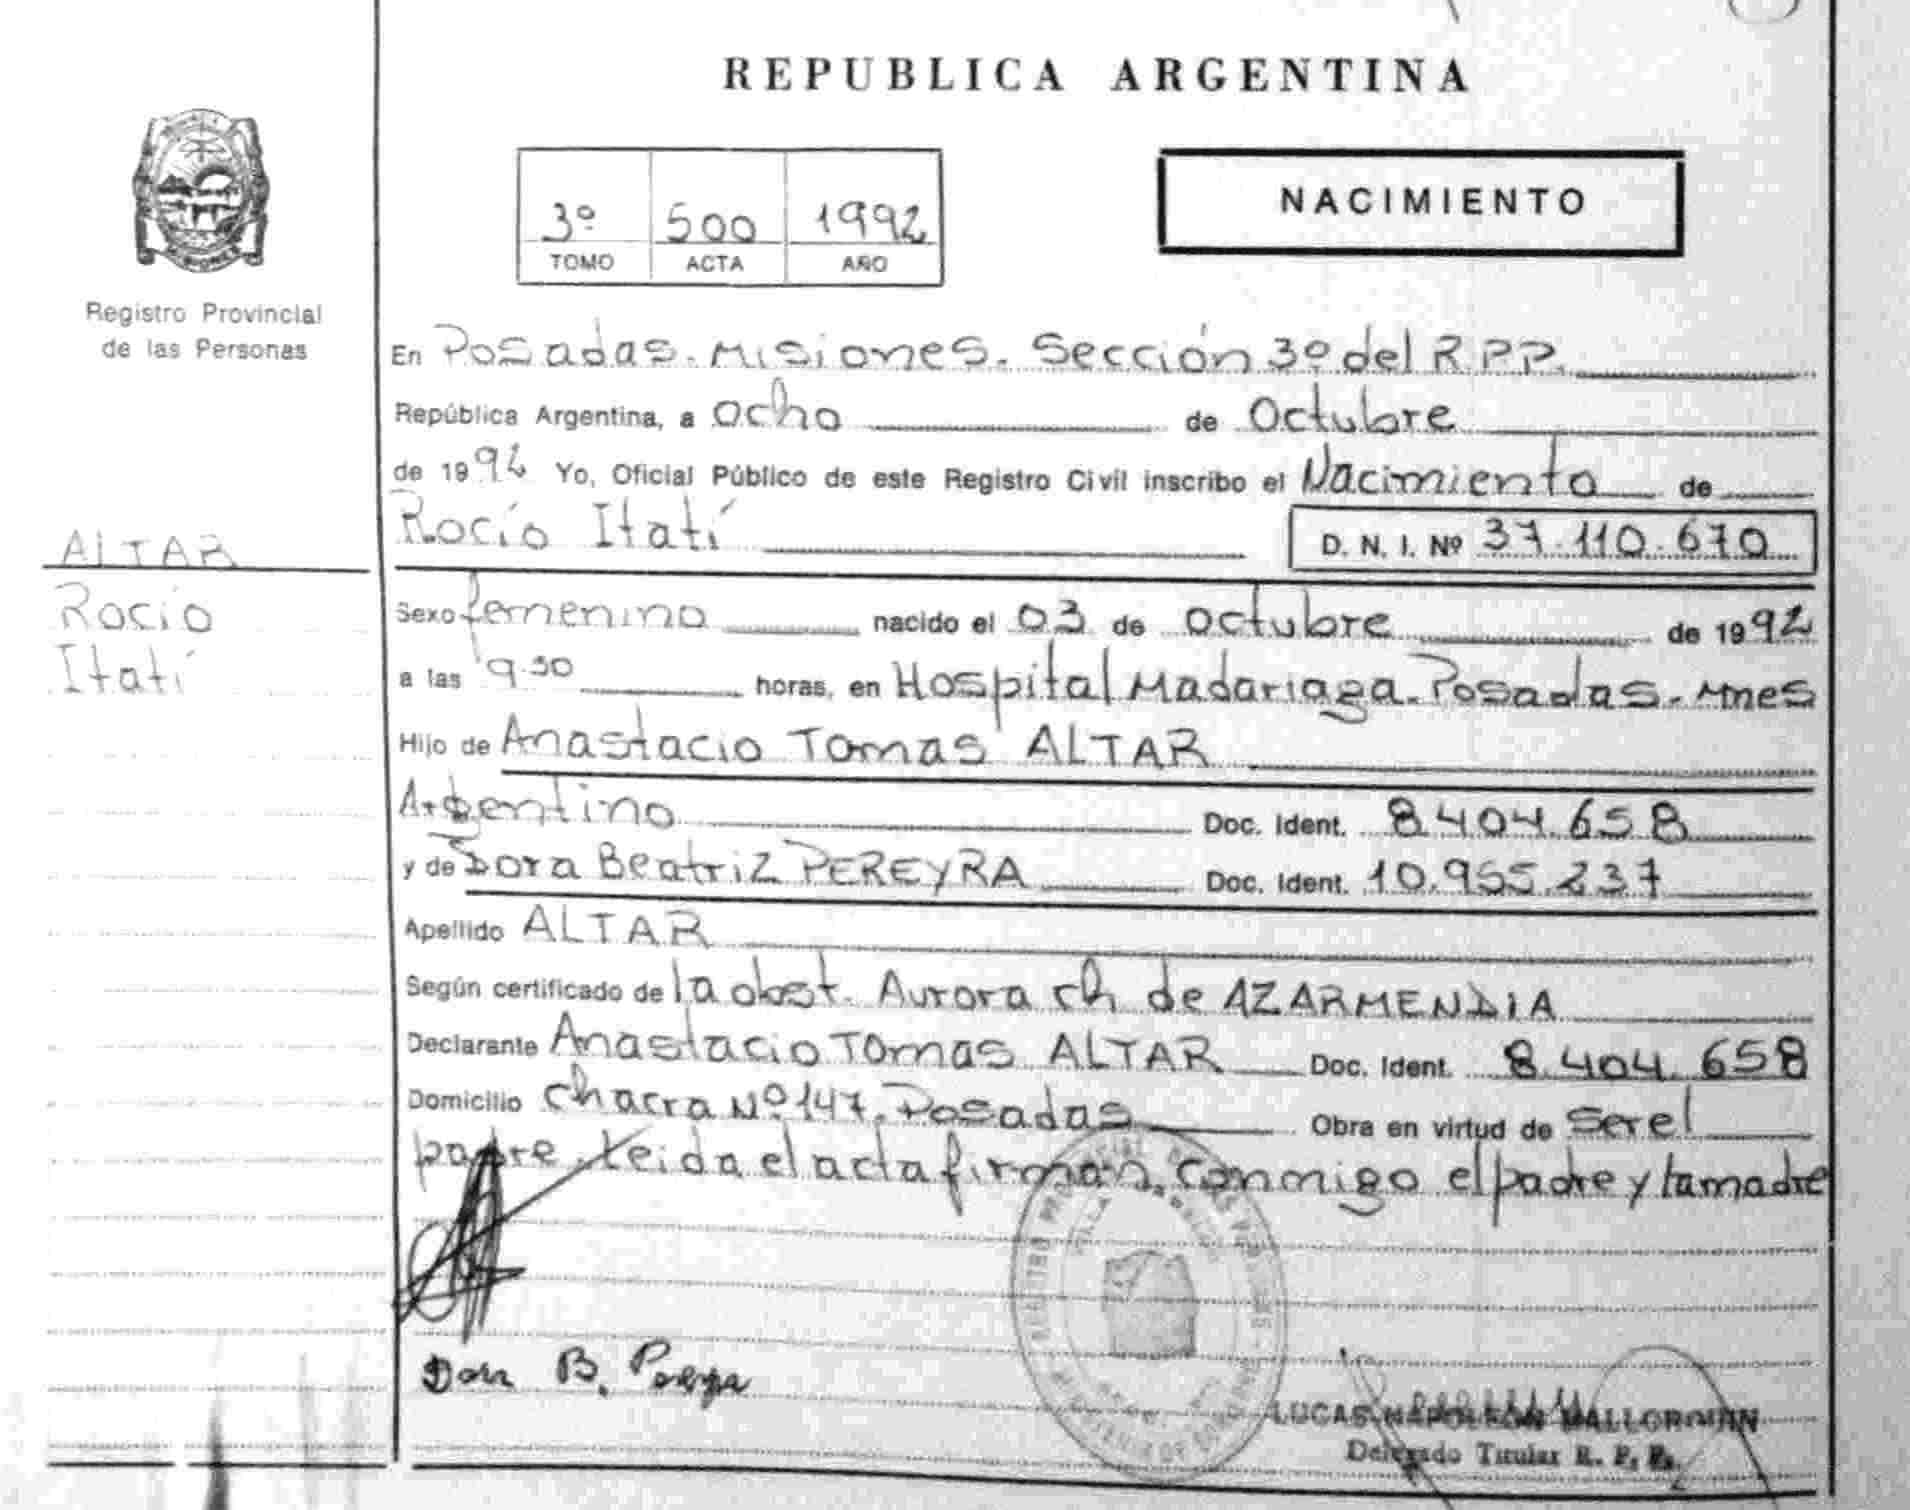 REPUBLICA ARGENTINA
NACIMIENTO
3º 500 1992
TOMO ACTA AÑO
Registro Provincial
de las Personas
En Posadas. Misiones. Sección 3º del R.P.P.
República Argentina, a ocho de Octubre
de 1992 Yo, Oficial Público de este Registro Civil inscribo el Nacimiento de
Rocío Itatí D. N. I. Nº 37.110.670
ALTAR
Rocío
Itatí
Sexo femenino nacido el 03 de octubre de 1992
a las 9.30 horas, en Hospital Madariaga. Posadas. Mnes
Hijo de Anastacio Tomas ALTAR
Argentino Doc. Ident. 8.404.658
y de Dora Beatriz PEREYRA Doc. Ident. 10.955.237
Apellido ALTAR
Según certificado de la obst. Aurora ch de AZARMENDIA
Declarante Anastacio Tomas ALTAR Doc. Ident. 8.404.658
Domicilio Chacra Nº 147. Posadas Obra en virtud de ser el
padre. Leida el acta firman, conmigo el padre y la madre
B.
LUCAS NAPOLEON
Delegado Titular R. P. P.